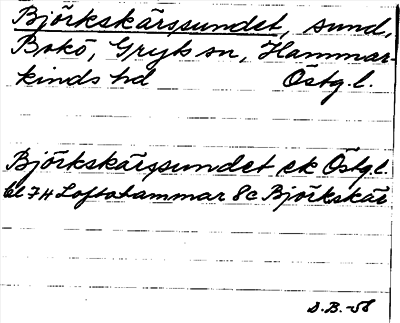 Björkskärssundet, sund,
Bokö, Gryts sn, Hammar-
kinds hd Östg. l.
Björkskärssundet ek Östg. l.
bl 7H Loftahammar 8c Björkskär
S.B.-58